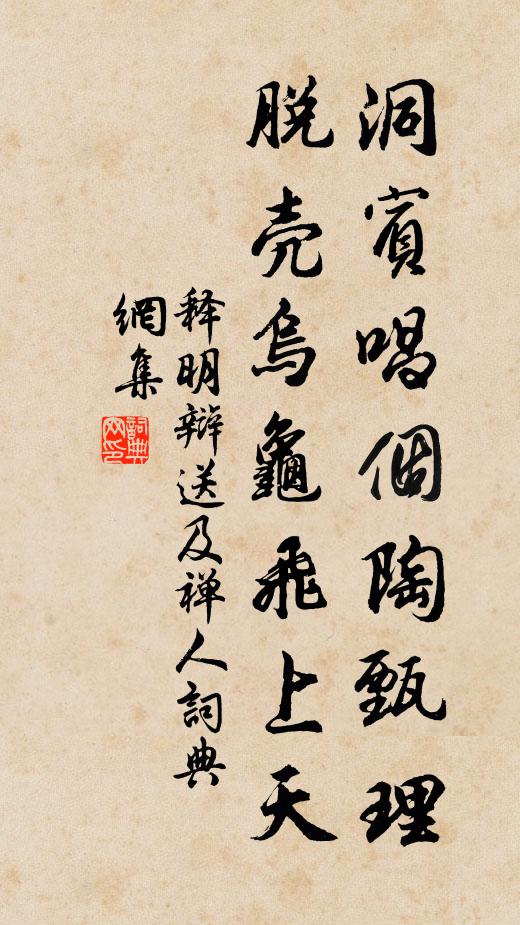 洞賓唱個陶甄理
脱壳烏龜飛上天
释明辩送及禅人詞典
網集
詞典
网印